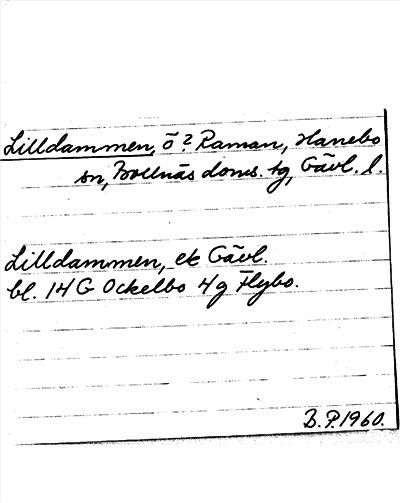 Lilldammen, ö? Raman, Hanebo
sn, Bollnäs doms. tg, Gävl. l.
Lilldammen, ek Gävl.
bl. 14G Ockelbo 4g Flybo.
B.P. 1960.